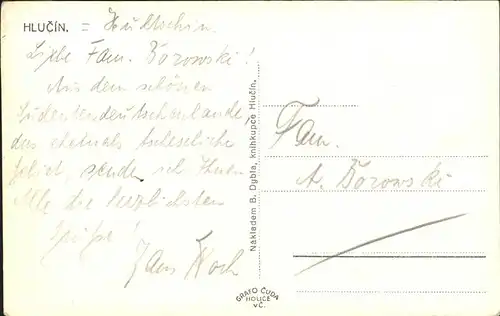 HLUČÍN. = Hultschin.
Liebe Fam. Borowski!
Aus dem schönen
Sudetendeutschenlande,
das ehemals
Gebiet, sende ich Ihnen
Alle die herzlichsten
Grüße!
Hans Koch
Fam.
A. Borowski
Nákladem B. Dybla, knihkupce Hlučín.
GRAFO ČUDA
HOLICE
v Č.